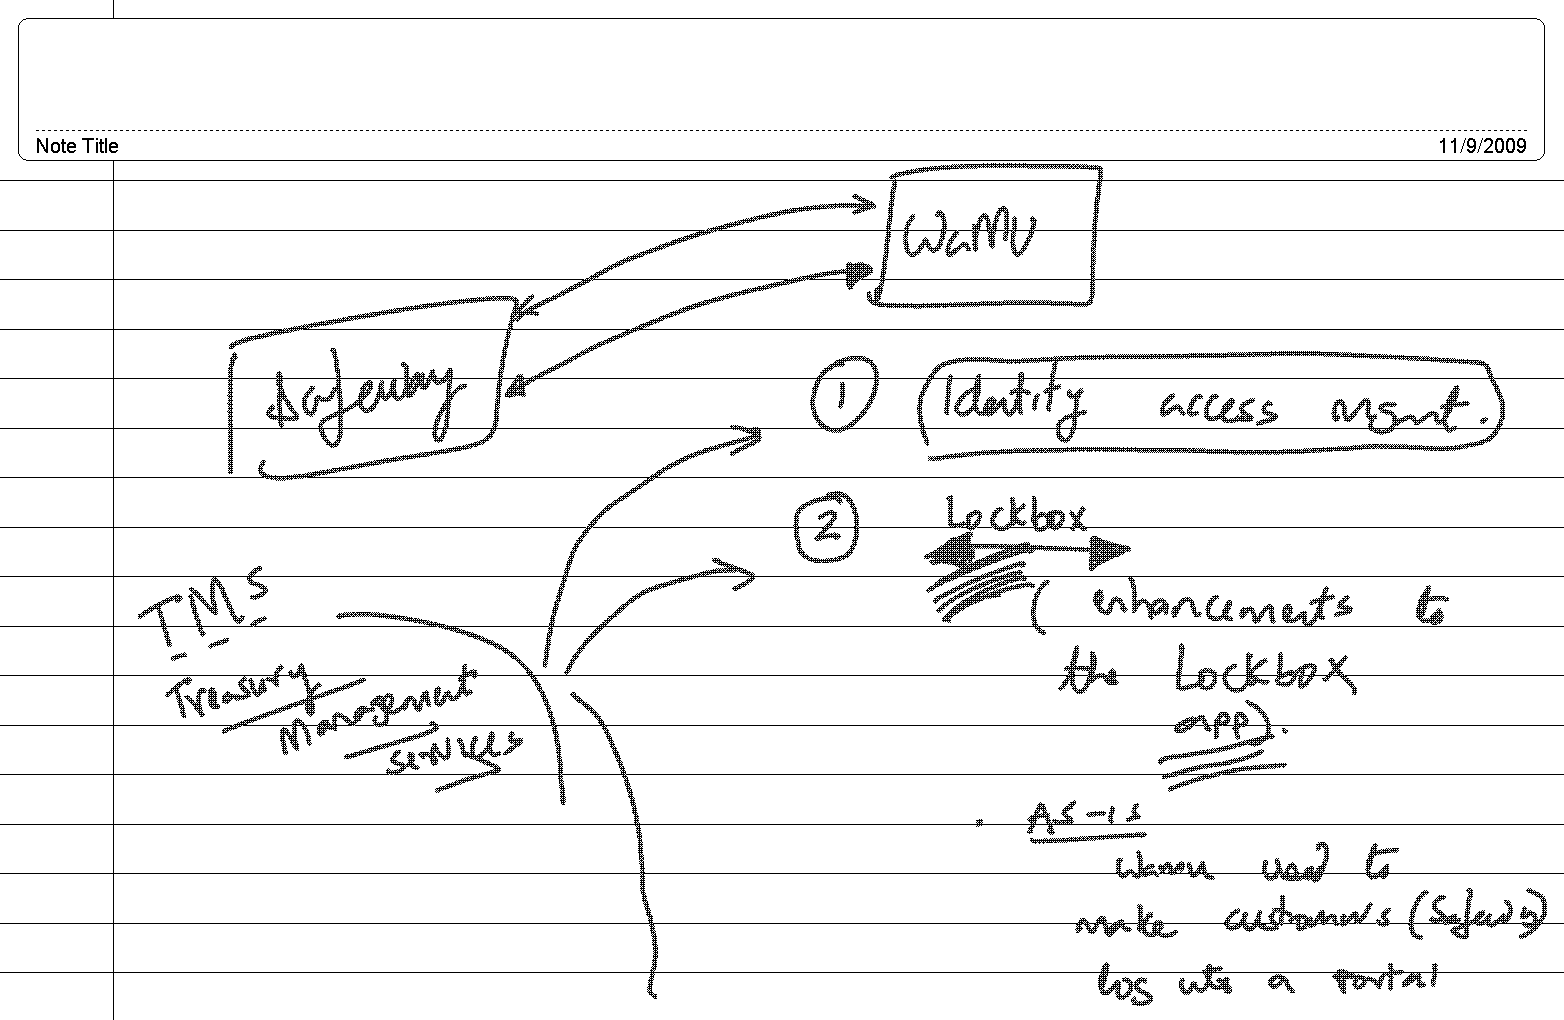 Note Title
11/9/2009
WaMU
Safeway
1 Identity access mgmt.
2 Lockbox
(enhancements to
the Lockbox
app).
TMS
Treasury
Management
Services
. AS-IS
Wamu used to
make customers (Safeway)
log into a portal